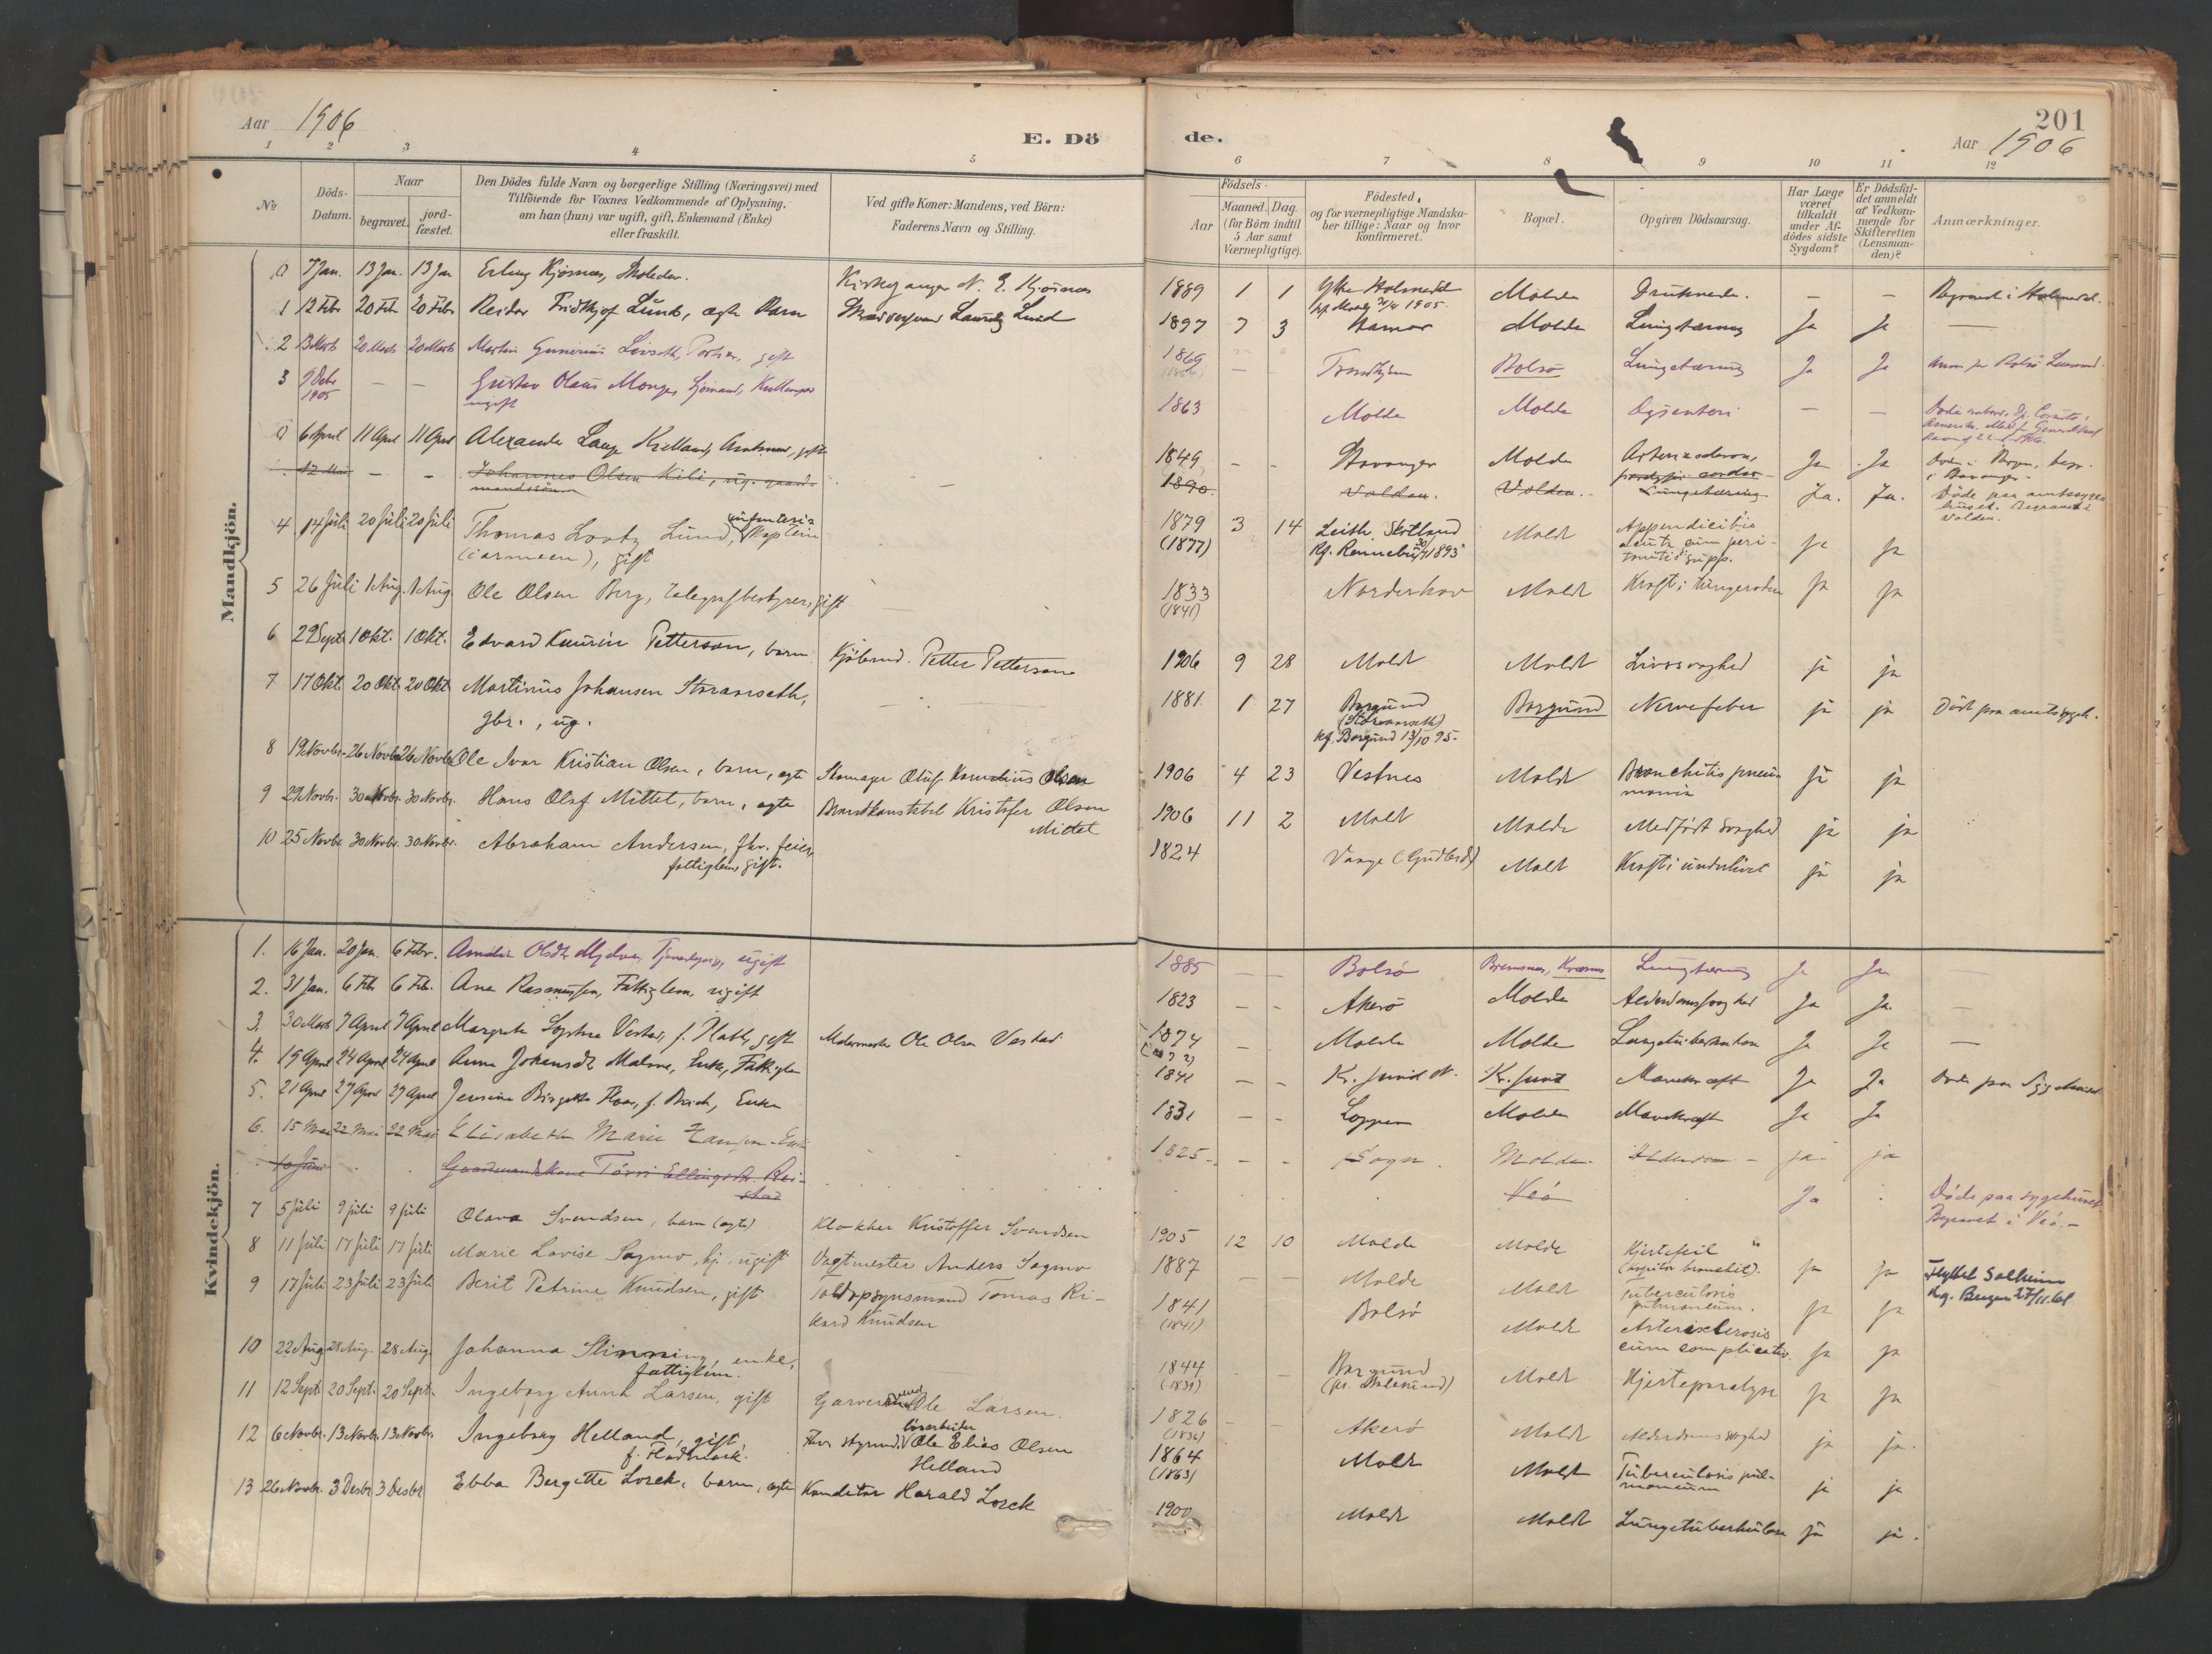 Aar 1906
E. Dö
de.
201
Aar 1906
1 2 3 4 5 6 7 8 9 10 11 12
№
Döds-Datum.
Naar
begravet.
jord-fæstet.
Den Dödes fulde Navn og borgerlige Stilling (Næringsvei) med
Tilföiende for Voxnes Vedkommende af Oplysning,
om han (hun) var ugift, gift, Enkemand (Enke)
eller fraskilt.
Ved gifte Koner: Mandens, ved Börn:
Faderens Navn og Stilling.
Födsels-
Aar
Maaned. Dag.
(for Börn indtil
5 Aar samt
Værnepligtige).
Födested,
og for værnepligtige Mandska-
ber tillige: Naar og hvor
konfirmeret.
Bopæl.
Opgiven Dödsaarsag.
Har Læge
været
tilkaldt
under Af-
dödes sidste
Sygdom?
Er Dödsfal-
det anmeldt
af Vedkom-
mende for
Skifteretten
(Lensman-
den)?
Anmærkninger.
Mandkjön.
0 7 Jan. 13 Jan. 13 Jan Erling Kjörsnes, 1889 1 1 Molde Druknede. — —
1 12 Febr 20 Feb 20 Febr Reidar Fridtjof Lund, ægte Barn Lauritz Lund 1897 7 3 Hamar Molde Lungetæring Ja Ja —
2 13 Marts 20 Marts 20 Marts Martin Gunerius Livseth, Portier, gift 1869 — Trondhjem Bolsö Lungetæring Ja Ja
3 9 Octr 1905 — — Gustav Olaus Monges Sjömand, ugift 1863 Molde Molde Dysenteri — —
0 6 April 11 April 11 April Alexander Lange Kielland, Amtmand, gift 1849 — - Stavanger Molde Ja Ja
12 Mai — - Johannes Olsen Kile, ug. gaard-
mandssön — 1890. Volden. Volden. Lungetæring Ja. Ja. Döde paa amtssyge-
huset. Begravet i
Volden.
4 14 Juli 20 Juli 20 Juli Thomas Lootz Lund, infanteri-
Kaptein
(i armeen), gift 1879 (1877) 3 14 Leith, Skotland
Kf. Rennebu 1893 Molde Appendicitis
acuta cum peri-
tonitis supp. ja ja
5 26 Juli 1 Aug. 1 Aug Ole Olsen Berg, Telegrafbestyrer, gift — 1833 (1841) Norderhov Molde Kræft i ja ja
6 29 Sept. 1 Okt. 1 Okt. Edvard Kaurin Petterson, barn Kjöbmd. Petter Petterson 1906 9 28 Molde Molde Livssvaghed ja ja
7 17 Okt. 20 Okt 20 Okt Martinus Johansen Storanseth,
gbr., ug. 1881 1 27 Borgund
(Storanseth)
Kf. Borgund 13/10 95. Borgund Nervefeber ja ja Död paa amtssygeh.
8 19 Novbr. 26 Novbr 26 Novbr Ole Ivar Kristian Olsen, barn, ægte Skomager Oluf Kornelius Olsen 1906 4 23 Vestnes Molde Bronchitis pneu-
monia ja ja
9 29 Novbr. 30 Novbr. 30 Novbr. Hans Olaf Mittet, barn, ægte Brandkonstabel Kristofer Olsen
Mittet 1906 11 2 Molde Molde Medfödt svaghed ja ja
10 25 Novbr 30 Novbr. 30 Novbr. Abraham Andersen, fhv. feier,
fattiglem, gift. 1824 Molde Kræft i underlivet ja ja
Kvindekjön.
1. 16 Jan. 20 Jan. 6 Febr. ugift 1885 — — Bolsö Bremsnes, Lungetæring Ja Ja
2. 31 Jan. 6 Feb 6 Feb. Ane Rasmussen, Fattiglem, ugift 1823 - - Akerö Molde Alderdomssvaghed Ja Ja. —
3. 30 Marts 7 April 7 April Margrete Sophie Vestad, gift Malermester Ole Olsen Vestad 1874 — Molde Molde Lungetuberkulose Ja Ja —
4. 19 April 24 April 24 April Anne Johansdt Malme, Enke, Fattiglem 1841 - - Kr.sund N. Kr.sund Mavekræft Ja Ja Döde paa Sygehuset
5. 21 April 27 April 27 April Jensine Birgitte Enke 1831 - - Loppen Molde Mavekræft Ja Ja
6. 15 Mai 22 Mai 22 Mai Elisabeth Marie Hansen - Enke 1825 - - Sogn. Molde Alderdom - ja ja
10 Juni Gaardmandskone Ellingsdt. Rei-
stad Veö Ja Döde paa sygehuset.
Begravet i Veö. -
7 5 Juli 9 juli 9 juli Olava Svendsen, barn (ægte) Klokker Kristoffer Svendsen 1905 12 10 Molde Molde Hjertefeil
(kapilær bronchit). ja ja
8 11 Juli 17 Juli 17 Juli Marie Lovise Sagmo, hj., ugift Vagtmester Anders Sagmo 1887 — — Molde Molde Tuberculosis
pulmonum. ja ja Flyttet Solheim
Kg. Bergen 27/11.61
9 17 Juli 23 Juli 23 Juli Berit Petrine Knudsen, gift Toldopsynsmand Tomas Ri-
kard Knudsen 1841 (1841) Bolsö Molde Arteriosclerosis
cum complicatio. ja ja
10 22 Aug 28 Aug. 28 Aug. Johanna Slinning, enke,
fattiglem. 1844 (1839) - Borgund
(pr. Aalesund) Molde Hjerteparalyse ja ja
11 12 Sept 20 Sept. 20 Sept. Ingeborg Anna Larsen, gift Garversvend Ole Larsen. 1826 (1836) - - Akerö Molde Alderdomssvaghed ja ja.
12 6 Novbr. 13 Novbr. 13 Novbr. Ingeborg Helland, gift,
f. Flademark. Ole Elias Olsen
Helland 1864 (1863) Molde Molde Tuberculosis pul-
monum ja ja
13 26 Novbr. 3 Desbr 3 Desbr Ebba Bergitte Lorck, barn, ægte Konditor Harald Lorck 1900 Molde Molde Lungetuberkulose ja ja.